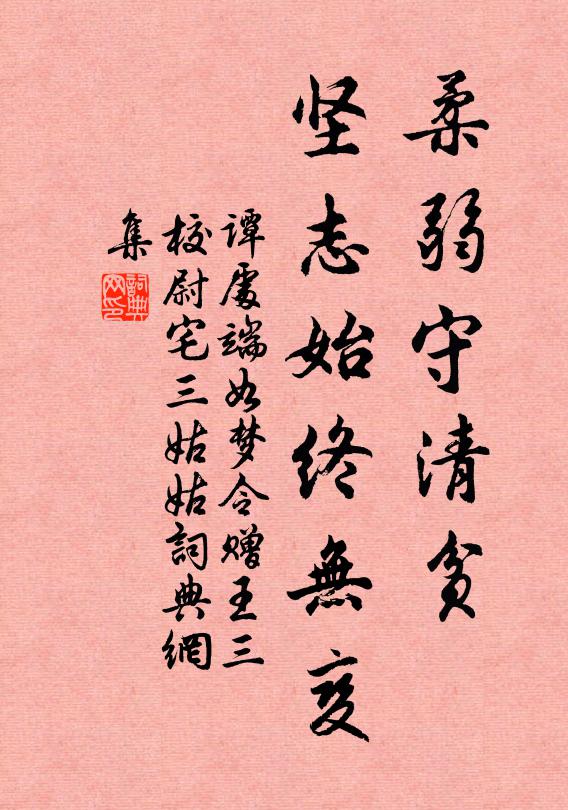 柔弱守清贫
坚志始终無变
谭處端如梦令赠王三
校尉宅三姑姑詞典網
集
詞典
网印